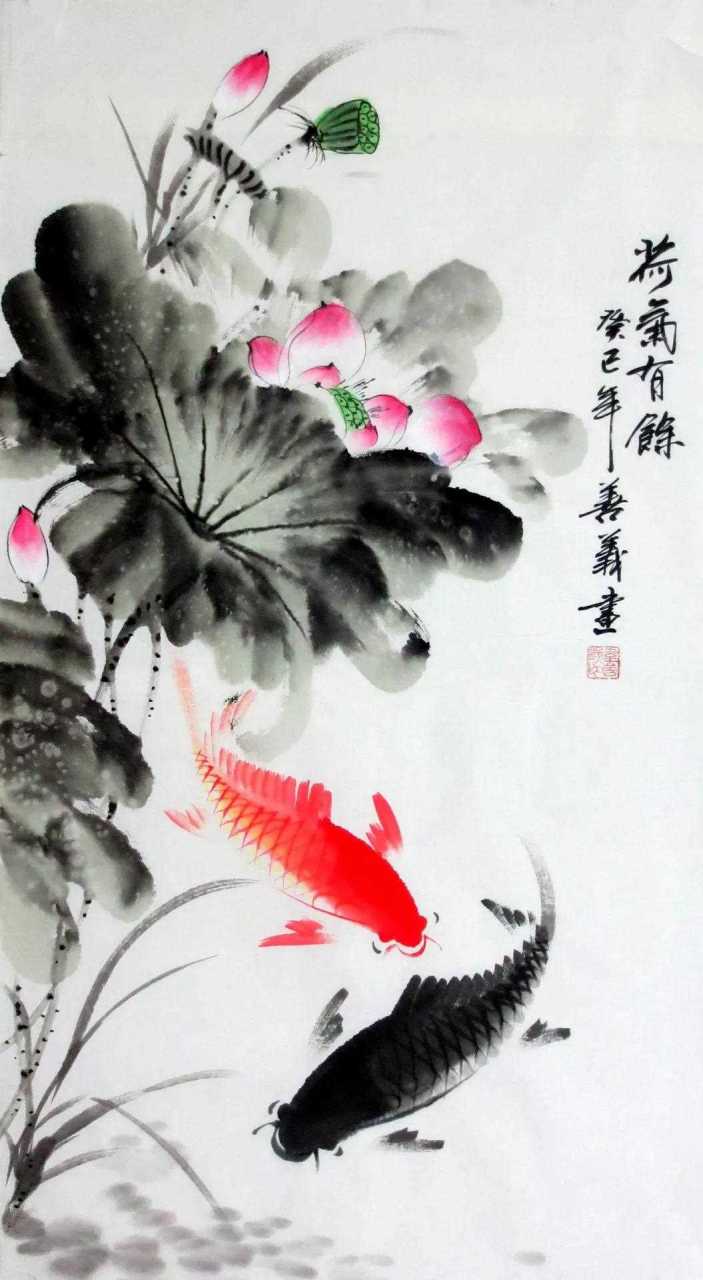 荷氣有餘
癸巳年善義畫